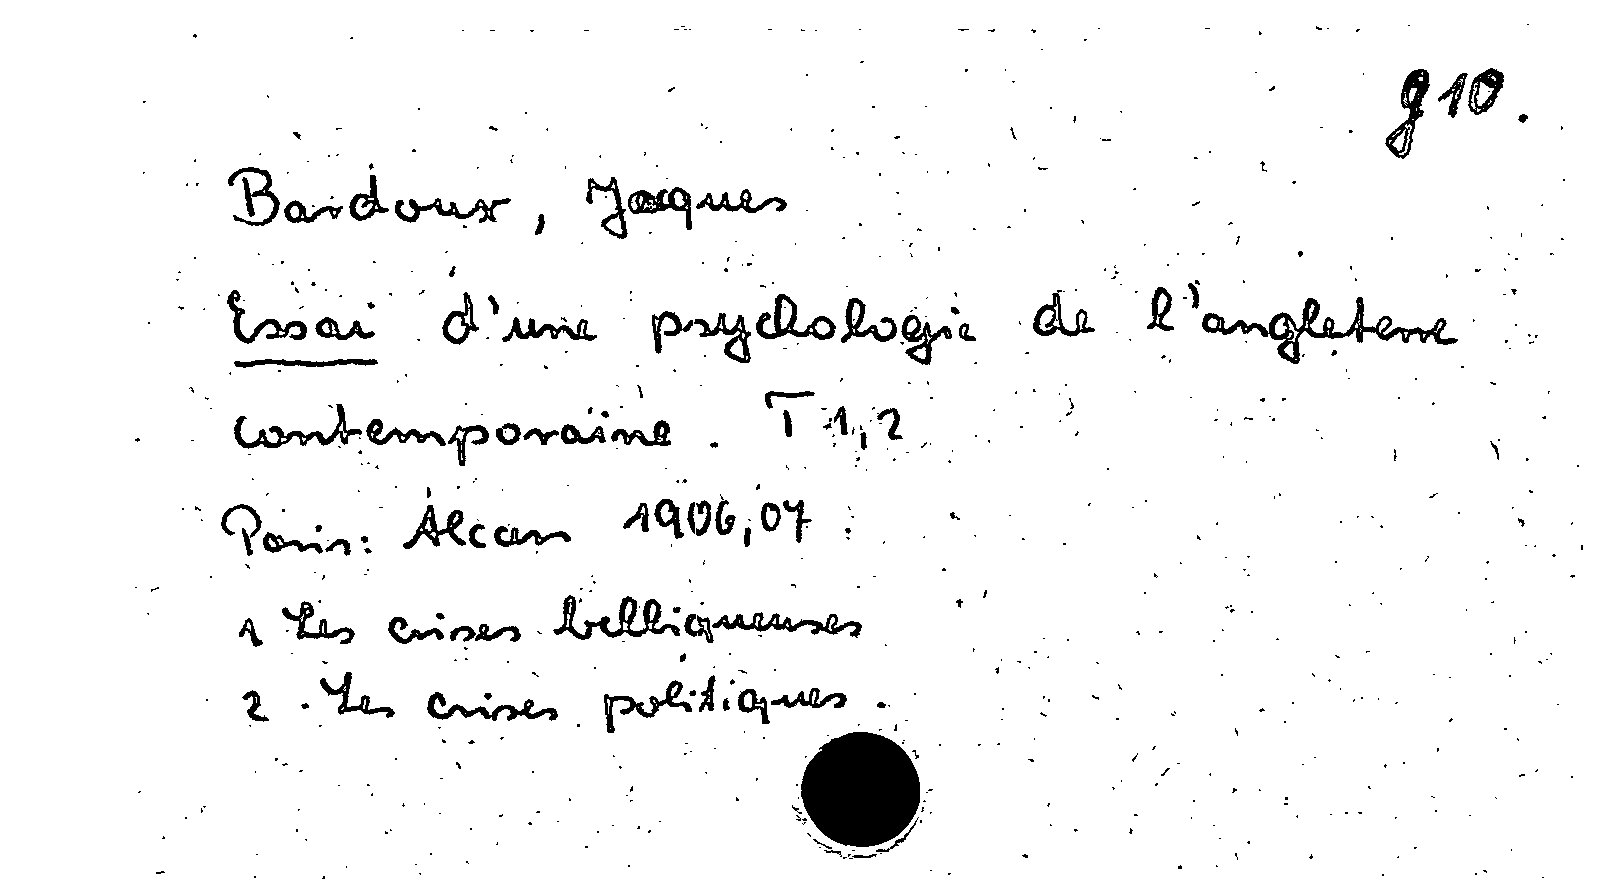 g 10.
Bardoux, Jacques
Essai d'une psychologie de l'angleterre
contemporaine. T 1,2
Paris: Alcan 1906,07.
1 Les crises belliqueuses
2. Les crises politiques.